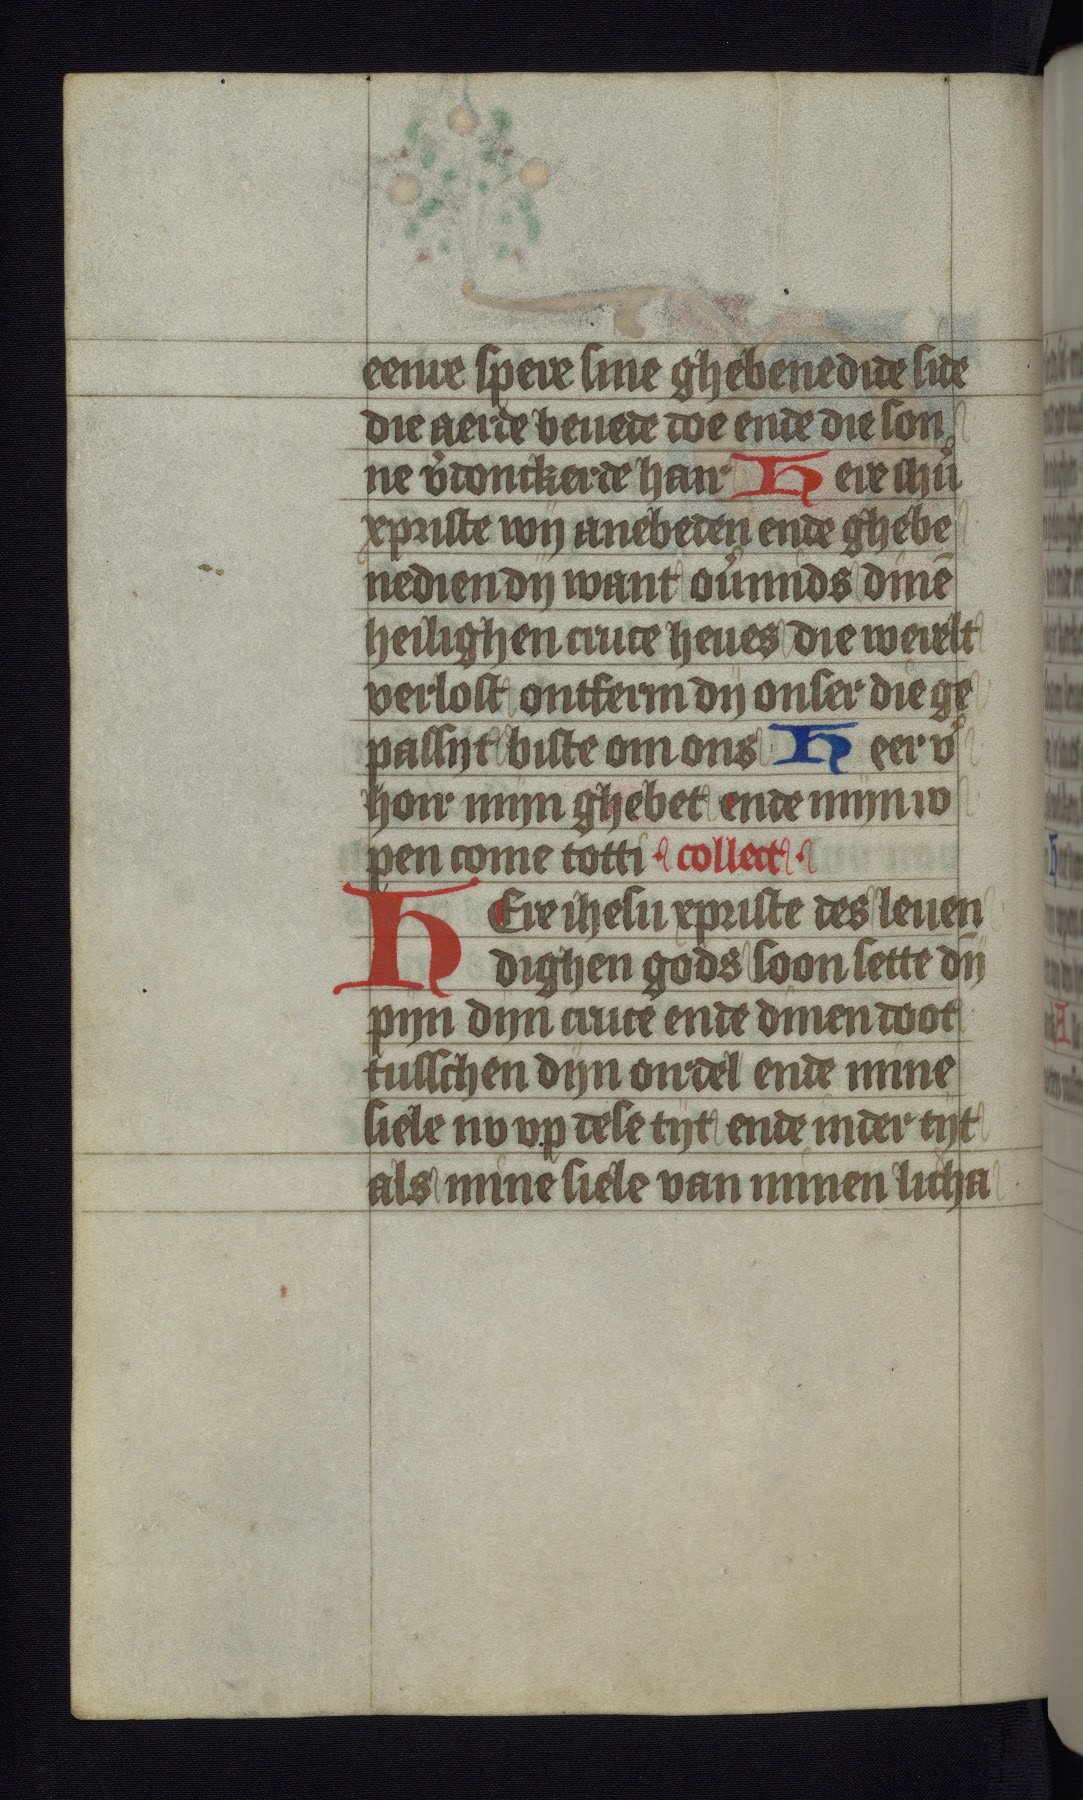 eenre spere sine ghebenedide side
die aerde beuede doe ende die son
ne v̾donckerde haer Here ihũ
xpriste wij anebeden ende ghebe
nedien dij want ou̾mids dinē
heilighen cruce heues die werelt
verlost ontferm dij onser die ge
passijt biste om ons Heer v̾
hoir mijn ghebet ende mijn ro
pen come totti · collect ·
HEre ihesu xpriste des leuen
dighen gods soon sette dijn
pijn dijn cruce ende dinen doot
tusschen dijn ordel ende mine
siele nv vp dese tijt ende in der tijt
als mine siele van minen licha